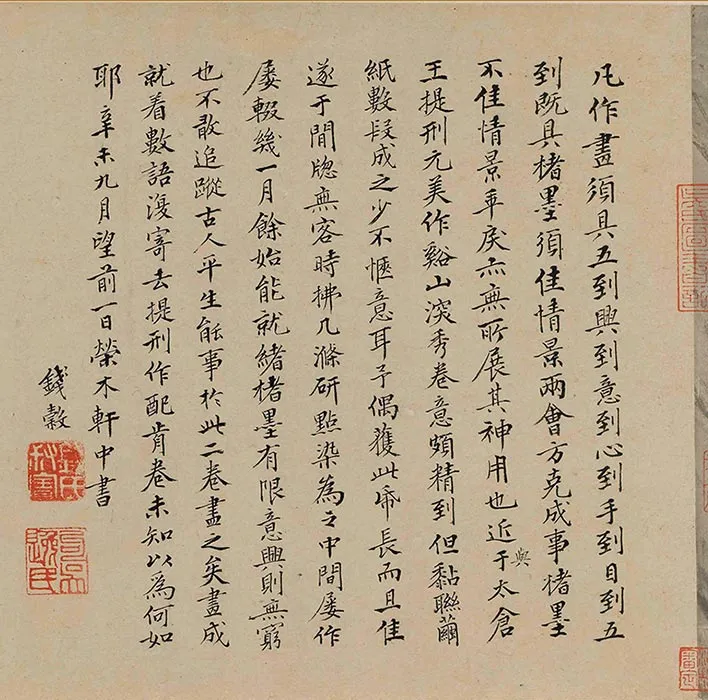 凡作畫須具五到興到意到心到手到目到五
到既具楮墨須佳情景兩會方克成事楮墨
不佳情景乖戾亦無所展其神用也近于太倉
與
王提刑元美作谿山深秀卷意頗精到但黏聯繭
紙數段成之少不愜意耳予偶獲此帋長而且佳
遂于閒牎無客時拂几滌研點染為之中間屡作
屡輟幾一月餘始能就緒楮墨有限意興則無窮
也不敢追蹤古人平生能事於此二卷盡之矣畫成
就着數語漫寄去提刑作配肯卷未知以為何如
耶辛未九月望前一日榮木軒中書
錢榖